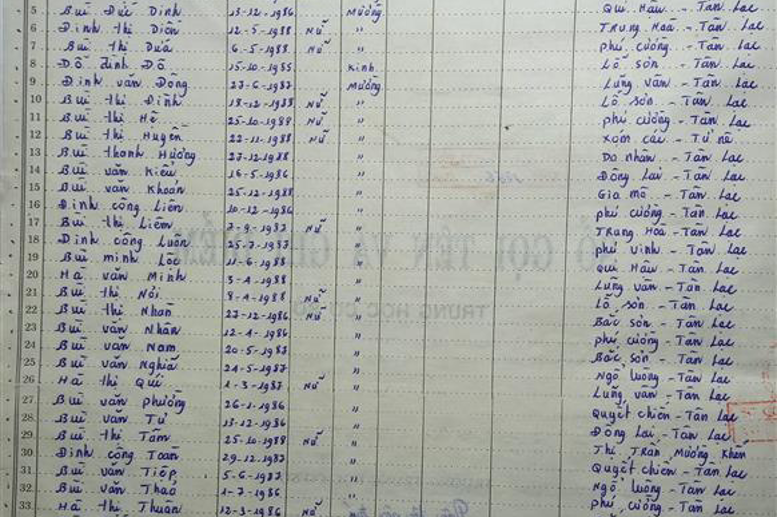 5 Bùi Đức Dinh 13-12-1986 Mường Quí Hậu - Tân Lạc
6 Đinh thị Diên 12-5-1988 Nữ " Trung Hoà - Tân Lạc
7 Bùi thị Dưa 6-5-1988 Nữ " phú cường - Tân Lạc
8 Đỗ đình Đô 15-10-1985 Kinh Lỗ sơn - Tân Lạc
9 Đinh văn Đông 27-6-1987 Mường Lũng vân - Tân Lạc
10 Bùi thị Đình 18-12-1988 Nữ " Lỗ sơn - Tân Lạc
11 Bùi thị Hê 25-10-1988 Nữ " phú cường - Tân Lạc
12 Bùi thị Huyền 22-11-1988 Nữ " Xóm cải - Tử nê
13 Bùi thanh Hương 27-12-1988 " Do nhân - Tân Lạc
14 Bùi văn Kiều 16-5-1986 " Đông Lai - Tân Lạc
15 Bùi văn Khoán 25-12-1988 " Gia mô - Tân Lạc
16 Đinh công Liên 10-12-1986 " phú cường - Tân Lạc
17 Bùi thị Liêm 7-9-1987 Nữ " Trung Hoà - Tân Lạc
18 Đinh công Luôn 25-7-1987 " phú vinh - Tân Lạc
19 Bùi minh Lôc 11-6-1988 " Quí Hậu - Tân Lạc
20 Hà văn Minh 3-4-1988 " Lũng vân - Tân Lạc
21 Bùi thị Nói 8-4-1988 Nữ " Lỗ sơn - Tân Lạc
22 Bùi thị Nhàn 27-12-1986 Nữ " Bắc sơn - Tân Lạc
23 Bùi văn Nhân 12-4-1986 " phú cường - Tân Lạc
24 Bùi văn Nam 20-5-1987 " Bắc sơn - Tân Lạc
25 Bùi văn Nghĩa 24-5-1987 " Ngổ Luông - Tân Lạc
26 Hà thị Quí 1-3-1987 Nữ " Lũng vân - Tân Lạc
27 Bùi văn phường 26-1-1986 " Quyết chiến - Tân Lạc
28 Bùi văn Tư 13-12-1986 " Đông Lai - Tân Lạc
29 Bùi thị Tâm 25-10-1988 Nữ " Thị Trấn Mường Khến
30 Đinh công Toàn 29-12-1987 " Quyết chiến - Tân Lạc
31 Bùi văn Tiếp 5-6-1987 " Ngổ Luông - Tân Lạc
32 Bùi văn Thaó 1-7-1986 " phú cường - Tân Lạc
33 Hà thị Thuận 12-3-1986 Nữ "
SỔ GỌI TÊN VÀ GHI ĐIỂM
TRUNG HỌC CƠ SỞ